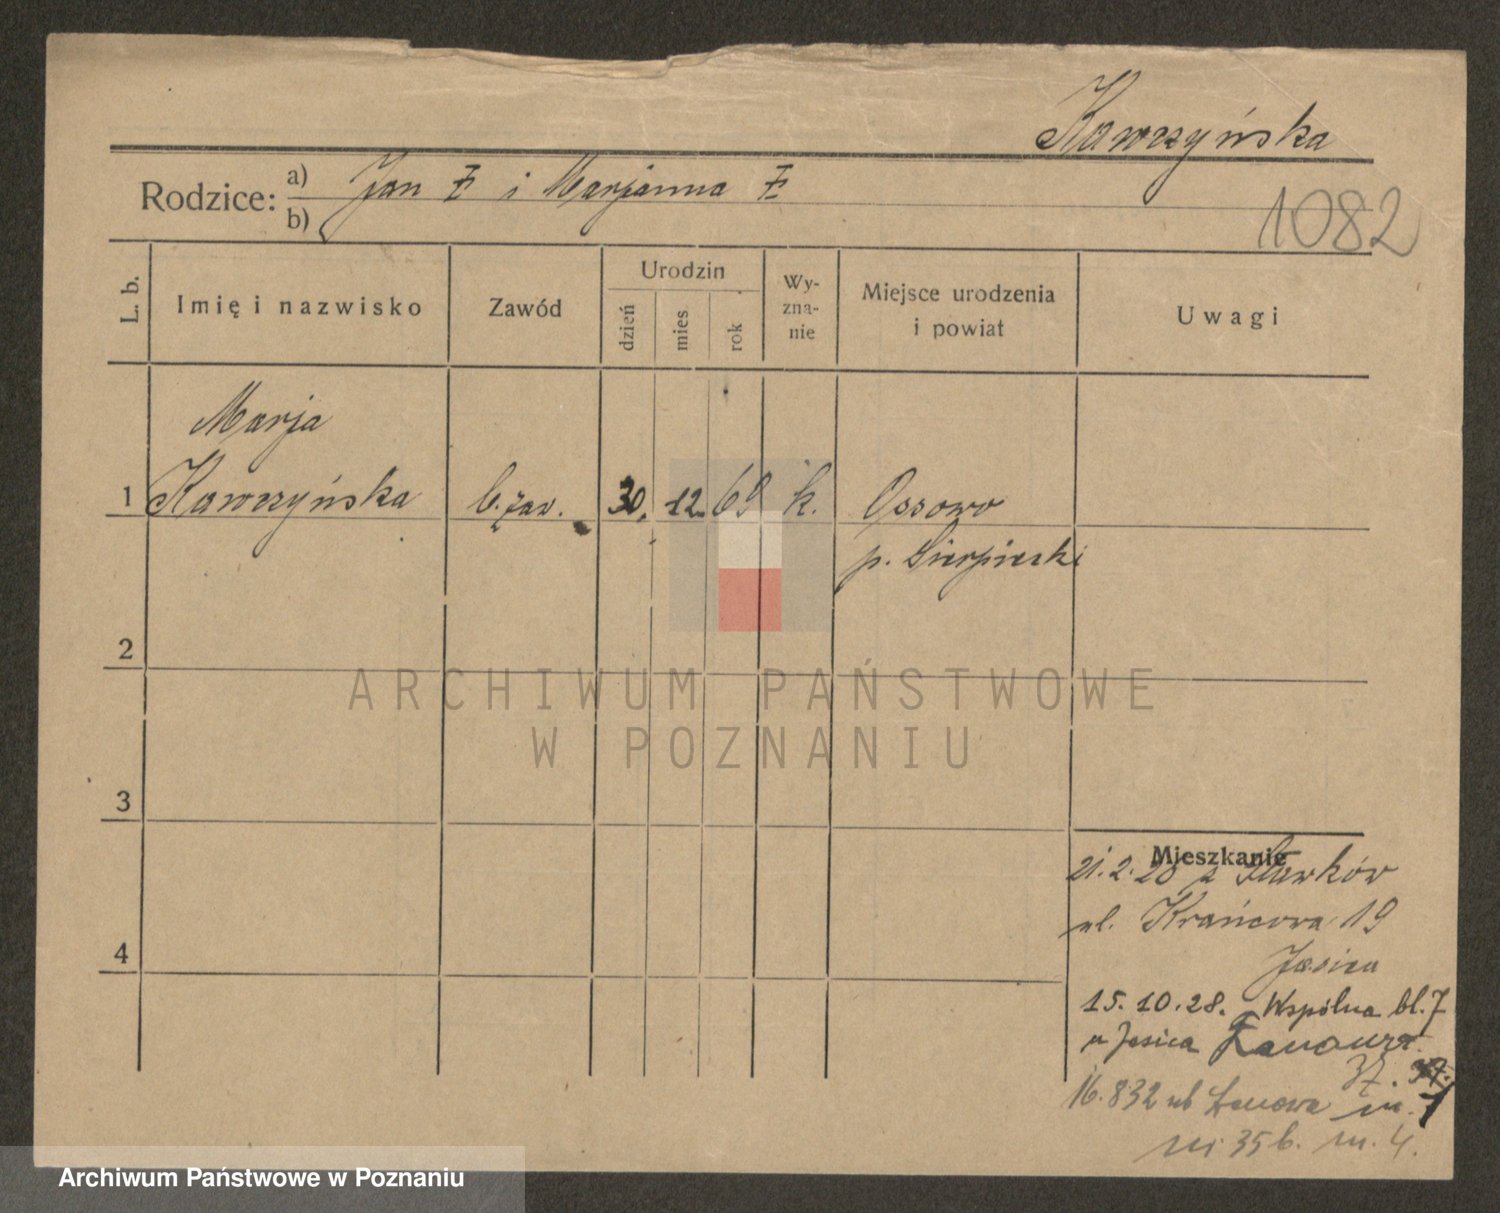 Kawczyńska
Rodzice: a) Jan i Marjanna
b)
1082
L. b.
Imię i nazwisko
Zawód
Urodzin
dzień
mies
rok
Wy-
zna-
nie
Miejsce urodzenia
i powiat
Uwagi
Marja
1 Kawczyńska b. zaw. 30. 12. 69 k. Ossowo
p. Sierpiecki
2
ARCHIWUM PAŃSTWOWE
W POZNANIU
3
Mieszkanie
21.2.28 z
ul. Krańcowa 19
Jasica
4
15.10.28. Wspólna bl. 7
u Jasica
37.
16.832 ul m. 1
35b. m. 4.
Archiwum Państwowe w Poznaniu